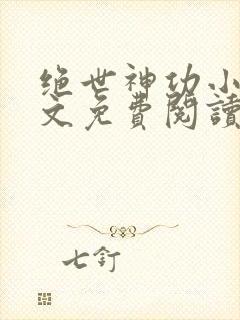 绝世神功小
文免費閱讀
七釘